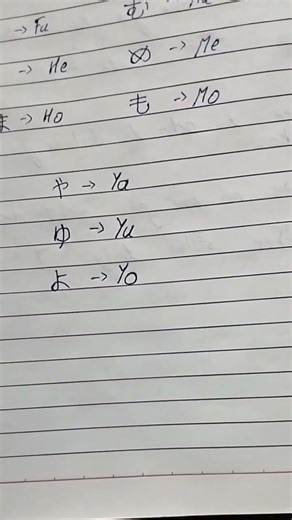 → Fu む →
→ He め → Me
→ Ho も → Mo
や → Ya
ゆ → Yu
よ → Yo